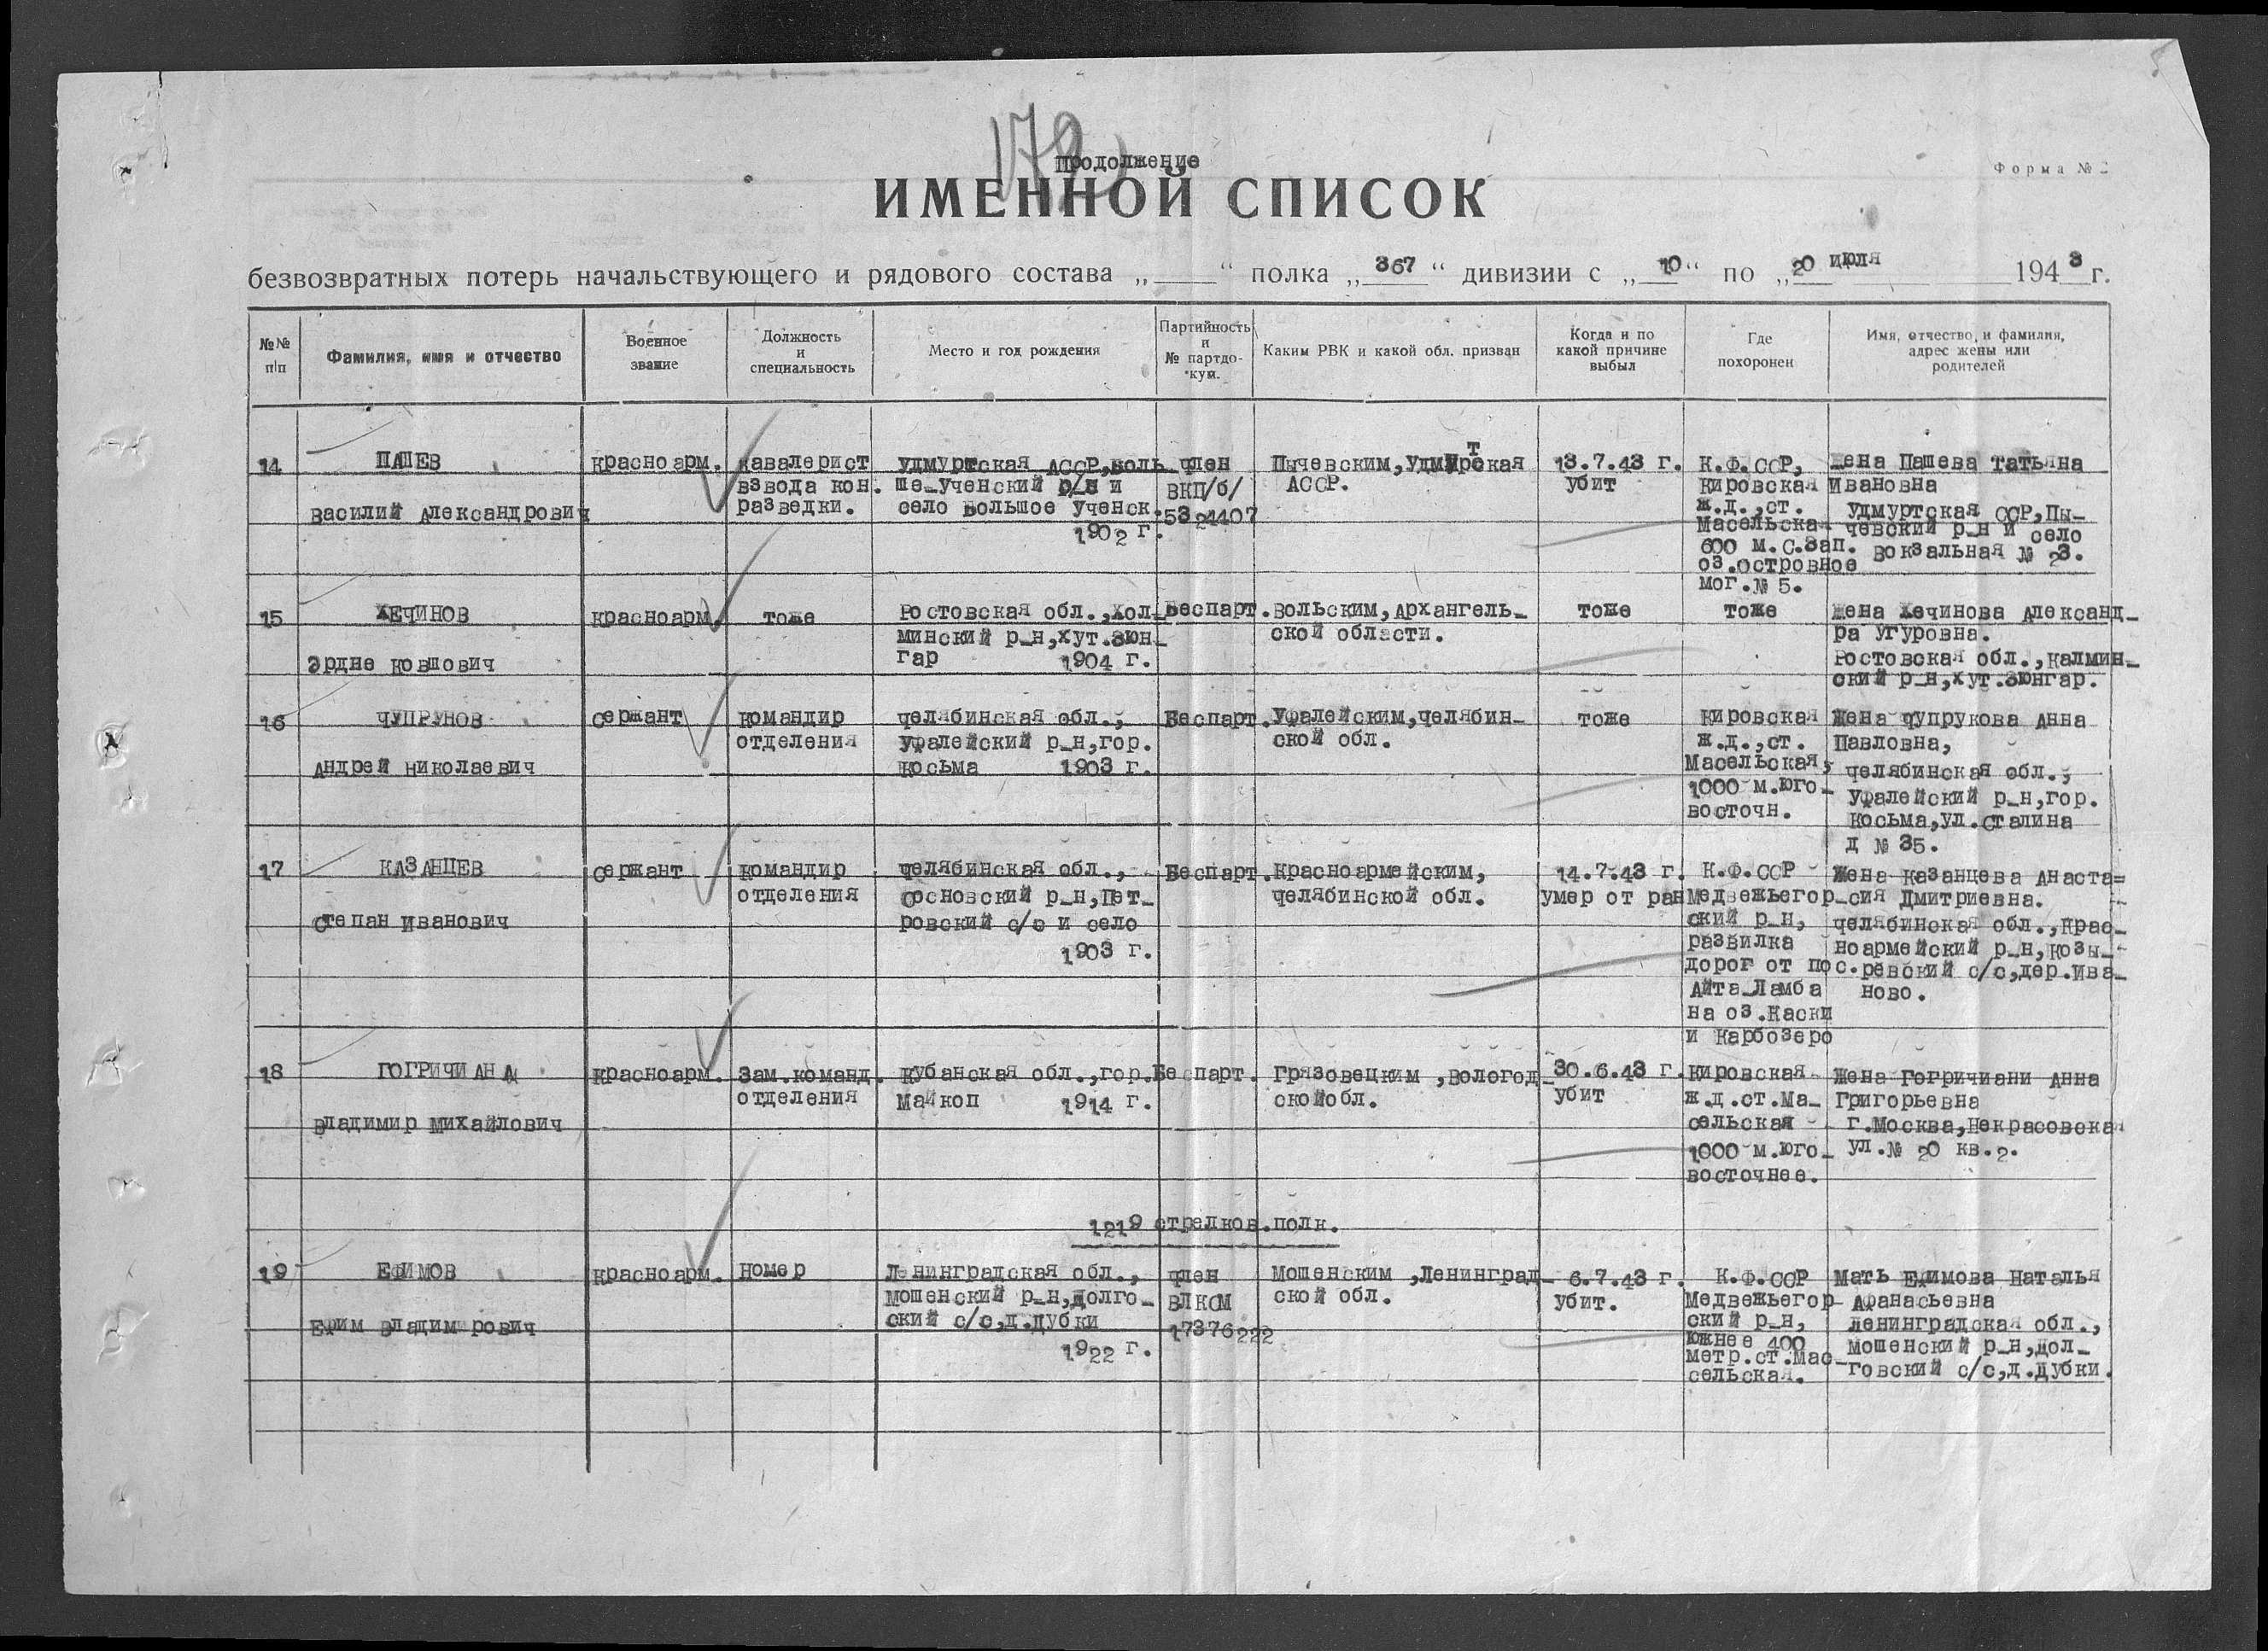 179
Продолжение
Форма №2
ИМЕННОЙ СПИСОК
безвозвратных потерь начальствующего и рядового состава „ “ полка „367“ дивизии с „10“ по „20 июля 1943 г.
№№ п|п
Фамилия, имя и отчество
Военное звание
Должность и специальность
Место и год рождения
Партийность и № партдокум.
Каким РВК и какой обл. призван
Когда и по какой причине выбыл
Где похоронен
Имя, отчество, и фамилия, адрес жены или родителей
14
ПАШЕВ
Василий Александрович
Красноарм.
Кавалерист
взвода кон.
разведки.
Удмуртская АССР, Боль
ше-Ученский р/н и
село Большое Ученск.
1902 г.
Член
ВКП/б/
5324407
Пычевским, Удмуртская
АССР.
13.7.43 г.
убит
К.Ф.ССР,
Кировская
ж.д.,ст.
Масельская
600 м.с.зап.
оз.островное
мог.№ 5.
Жена Пашева Татьяна
Ивановна
Удмуртская ССР,Пы-
чевский р-н и село
Вокзальная № 23.
15
ХЕЧИНОВ
Эрдне Ковшович
Красноарм.
тоже
Ростовская обл.,Кол-
минский р-н,хут.Зюн-
гар 1904 г.
Беспарт.
Вольским,Архангель-
ской области.
тоже
тоже
Жена Хечинова Александ-
ра Угуровна.
Ростовская обл.,Калмин-
ский р-н,хут.Зюнгар.
16
ЧУПРУНОВ
Андрей Николаевич
Сержант
Командир
отделения
Челябинская обл.,
Уфалейский р-н,гор.
Косьма 1903 г.
Беспарт.
Уфалейским,Челябин-
ской обл.
тоже
Кировская
ж.д.,ст.
Масельская,
1000 м.юго-
восточн.
Жена Чупрукова Анна
Павловна,
Челябинская обл.,
Уфалейский р-н,гор.
Косьма,ул.Сталина
д № 35.
17
КАЗАНЦЕВ
Степан Иванович
Сержант
Командир
отделения
Челябинская обл.,
Сосновский р-н,Пет-
ровский с/с и село
1903 г.
Беспарт.
Красноармейским,
Челябинской обл.
14.7.43 г.
умер от ран
К.Ф.ССР
Медвежьегор-
ский р-н,
развилка
дорог от пос.
Айта-Ламба
на оз.Каски
и Карбозеро
Жена Казанцева Анаста=
сия Дмитриевна.
Челябинская обл.,Крас-
ноармейский р-н,Козы-
ревский с/с,дер.Ива-
ново.
18
ГОГРИЧИАНИ
Владимир Михайлович
Красноарм.
Зам.команд.
отделения
Кубанская обл.,гор.
Майкоп 1914 г.
Беспарт.
Грязовецким ,Вологод-
скойобл.
30.6.43 г.
убит
Кировская
ж.д.ст.Ма-
сельская
1000 м.юго-
восточнее.
Жена Гогричиани Анна
Григорьевна
г.Москва,Некрасовская
ул.№ 20 кв.2.
1219 стрелков.полк.
19
ЕФИМОВ
Ефим Владимирович
Красноарм.
Номер
Ленинградская обл.,
Мошенский р-н,Долго-
ский с/с,д.Дубки
1922 г.
Член
ВЛКСМ
17376222
Мошенским ,Ленинград-
ской обл.
6.7.43 г.
убит.
К.Ф.ССР
Медвежьегор-
ский р-н,
южнее 400
метр.ст.Мас-
сельская.
Мать Ефимова Наталья
Афанасьевна
Ленинградская обл.,
Мошенский р-н,Дол-
говский с/с,д.Дубки.